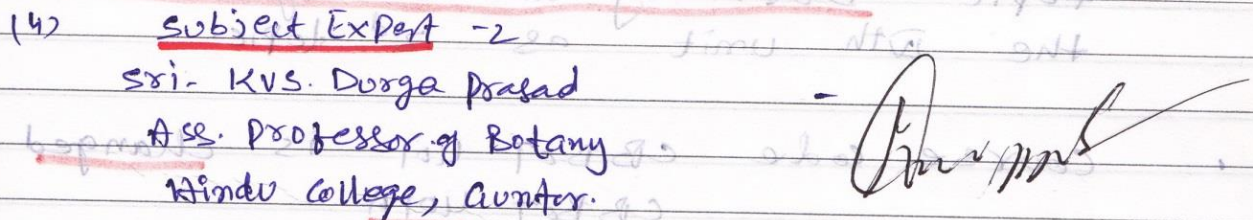 (4) Subject Expert -2
Sri- KVS. Durga Prasad -
Ass. Professor of Botany
Hindu College, Guntur.